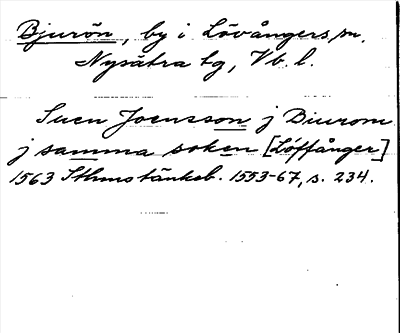 Bjurön, by i Lövångers sn,
Nysätra tg, Vb. l.
Suen Joensson j Biurom
j samma soken [Löffånger]
1563 Sthms tänkeb. 1553-67, s. 234.